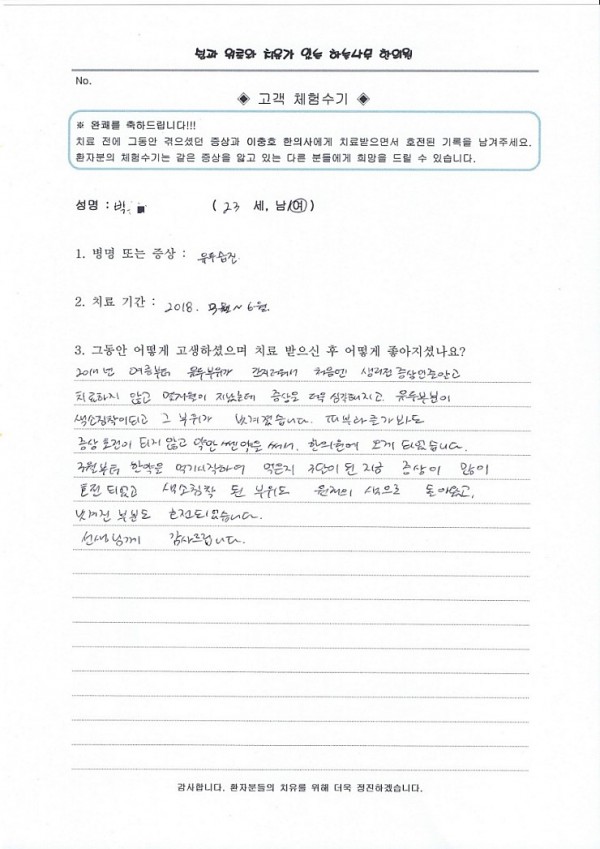 No.
◈ 고객 체험수기 ◈
※ 완쾌를 축하드립니다!!!
치료 전에 그동안 겪으셨던 증상과 이충호 한의사에게 치료받으면서 호전된 기록을 남겨주세요.
환자분의 체험수기는 같은 증상을 앓고 있는 다른 분들에게 희망을 드릴 수 있습니다.
성명 : 박 ( 23 세, 남/여 )
1. 병명 또는 증상 : 유두습진
2. 치료 기간 : 2018. 3월 ~ 6월
3. 그동안 어떻게 고생하셨으며 치료 받으신 후 어떻게 좋아지셨나요?
여름부터 유두부위가 간지러워서 처음엔 생리전증상인줄알고
치료하지 않고 몇개월이 지났는데 증상은 더욱 심각해지고. 유두부분이
색소침착이되고 그 부위가 벗겨졌습니다. 피부과를가봐도
증상 호전이 되지 않고 약만 쎈약을 써서. 한의원에 오게 되었습니다.
3월부터 한약을 먹기시작하여 먹은지 3달이 된 지금 증상이 많이
호전 되었고 색소침착 된 부위도 원래의 색으로 돌아왔고,
벗겨진 부분도 호전되었습니다.
선생님께 감사드립니다.
감사합니다. 환자분들의 치유를 위해 더욱 정진하겠습니다.